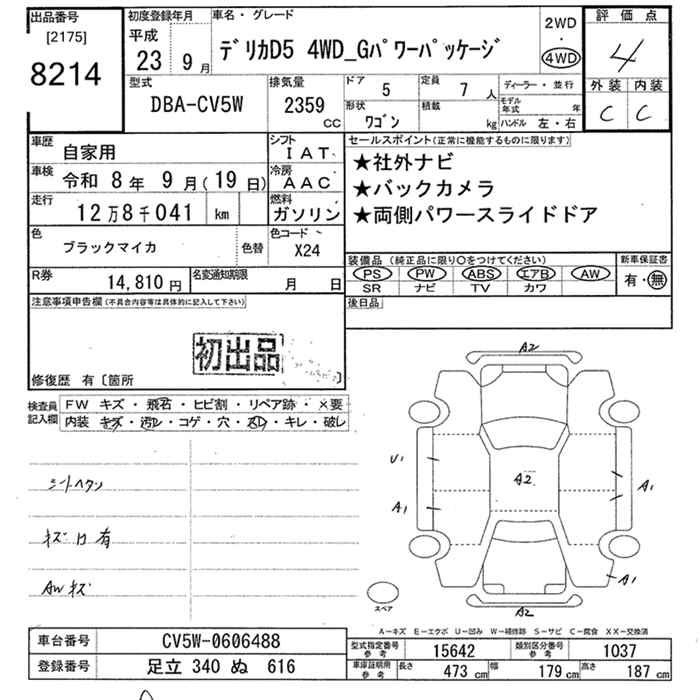 出品番号
[2175]
8214
初度登録年月
平成
23 9月
車名・グレード
デリカD5 4WD_Gパワーパッケージ
2WD
・
4WD
評価点
4
外装 内装
C C
型式
DBA-CV5W
排気量
2359
CC
ドア
5
定員
7人
形状
ワゴン
積載
kg
ディーラー・並行
モデル年式 年
ハンドル 左・右
車歴
自家用
シフト
IAT
車検
令和 8年 9月(19日)
冷房
AAC
走行
12万8千041 km
燃料
ガソリン
色
ブラックマイカ
色替
色コード
X24
R券
14,810円
名変通知期限
月 日
セールスポイント(正常に機能するものに限ります)
★社外ナビ
★バックカメラ
★両側パワースライドドア
装備品 (純正品に限り○をつけてください)
PS PW ABS エアB AW
SR ナビ TV カワ
新車保証書
有・無
後日品
注意事項申告欄(不具合内容等は具体的に記入して下さい)
初出品
修復歴 有〔箇所 〕
検査員
記入欄
FW キズ・飛石・ヒビ割・リペア跡・×要
内装 キズ・汚レ・コゲ・穴・スレ・キレ・破レ
シートヘタリ
キズ凹有
AWキズ
A2
U1
A1
A2
A1
A1
A2
スペア
A-キズ E-エクボ U-凹み W-補修跡 S-サビ C-腐食 XX-交換済
車台番号 CV5W-0606488
登録番号 足立 340 ぬ 616
型式指定番号
参考
15642
類別区分番号
参考
1037
車庫証明用
参考
長さ 473 cm 幅 179 cm 高さ 187 cm